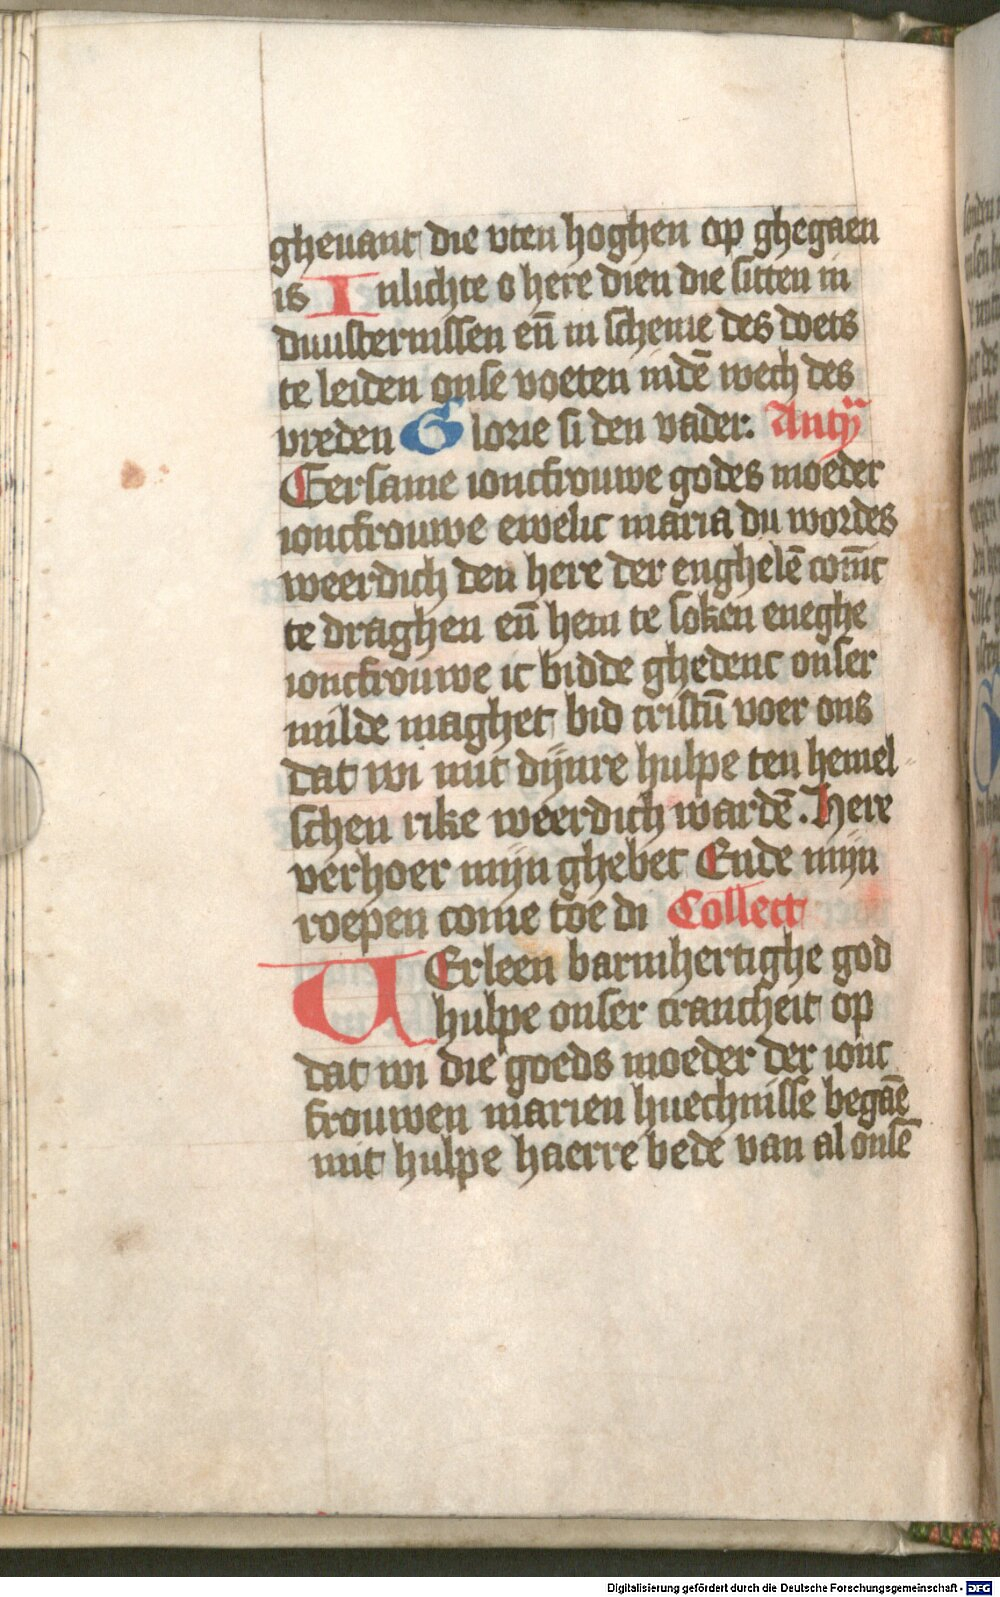 ghenant die vten hoghen op ghegaen
is Inlichte o here dien die sitten in
duusternissen eñ in scheme des doets
te leiden onse voeten indē wech des
vreden Glorie si den vader. Antÿ
Eersame ioncfrouwe godes moeder
ioncfrouwe ewelic maria du wordes
weerdich den here der enghelē
te draghen eñ hem te soken eneghe
ioncfrouwe ic bidde ghedenc onser
milde maghet bid cristū voer ons
dat wi mit dijnre hulpe ten hemel-
schen rike weerdich wardē. Here
verhoer mijn ghebet Ende mijn
roepen come toe di Collect
VErleen barmhertighe god
hulpe onser crancheit op
dat wi die goeds moeder der ionc
frouwen marien huechnisse begaē
mit hulpe haerre bede van al onsē
Digitalisierung gefördert durch die Deutsche Forschungsgemeinschaft - DFG